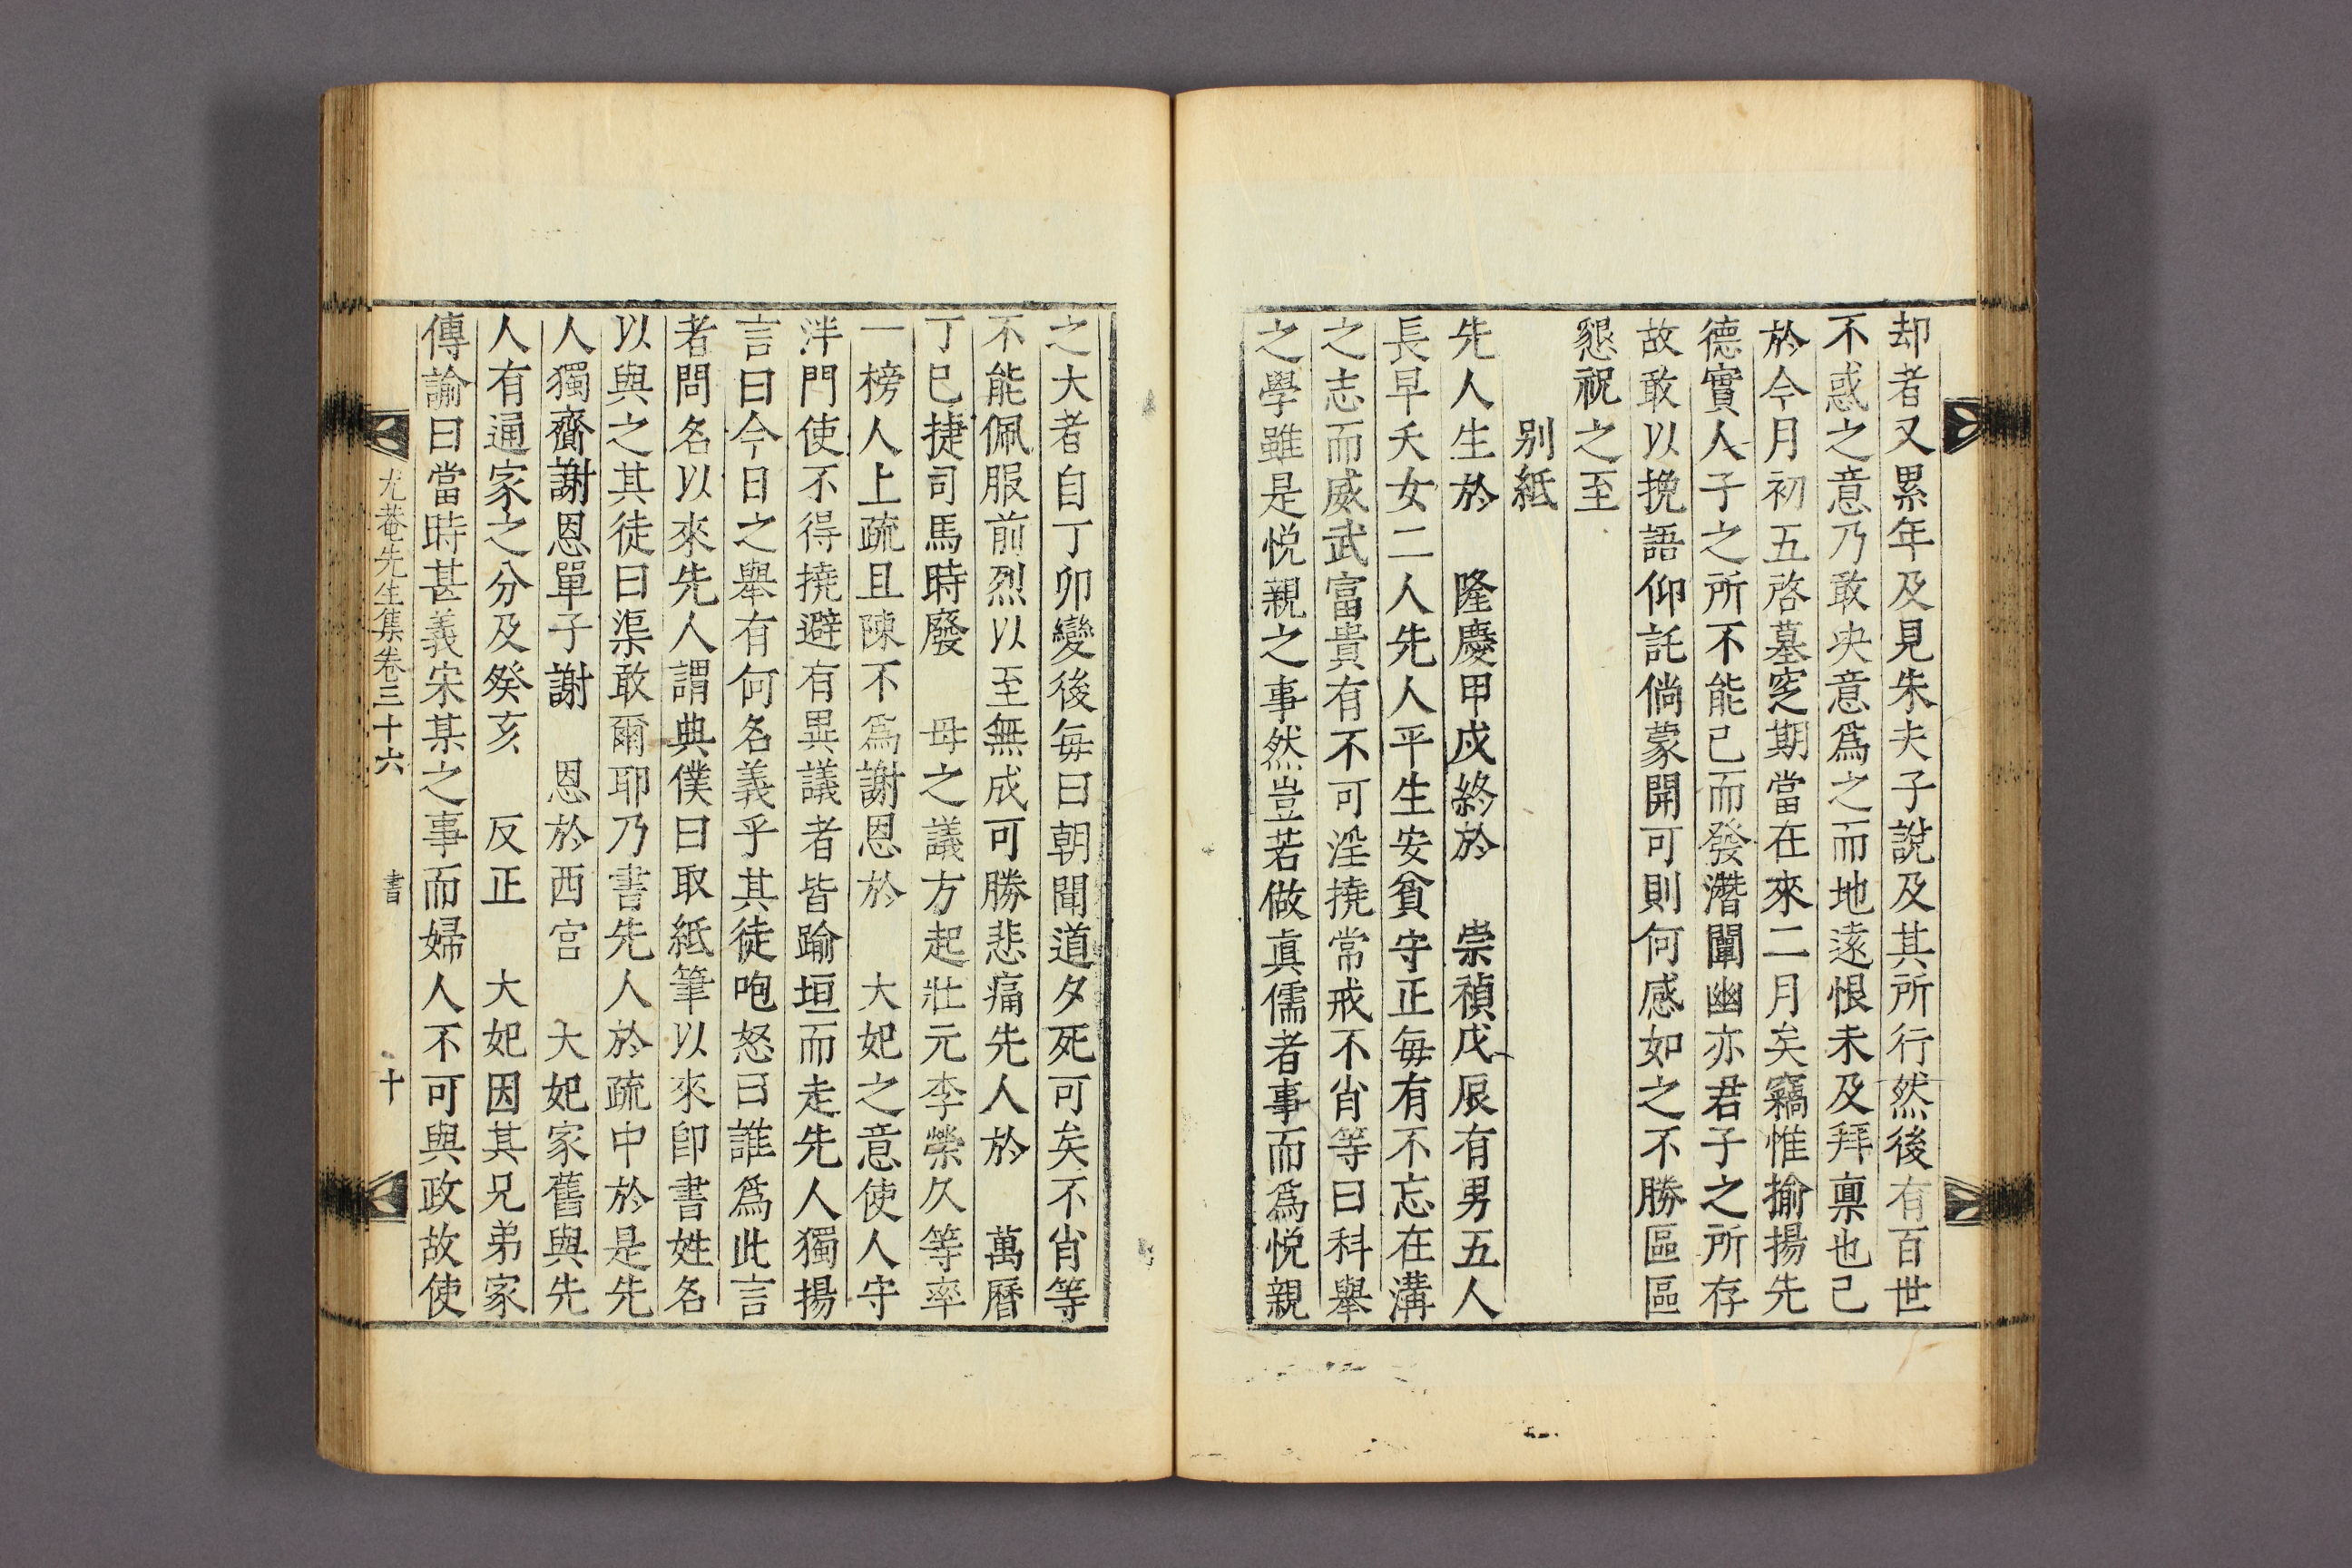 却者又累年及見朱夫子說及其所行然後有百世
不惑之意乃敢决意爲之而地遠恨未及拜稟也己
於今月初五啓墓窆期當在來二月矣竊惟揄揚先
德實人子之所不能已而發潛闡幽亦君子之所存
故敢以挽語仰託倘蒙開可則何感如之不勝區區
懇祝之至
別紙
先人生於　隆慶甲戌終於　崇禎戊辰有男五人
長早夭女二人先人平生安貧守正每有不忘在溝
之志而威武富貴有不可淫撓常戒不肖等曰科擧
之學雖是悅親之事然豈若做眞儒者事而爲悅親
之大者自丁卯變後每曰朝聞道夕死可矣不肖等
不能佩服前烈以至無成可勝悲痛先人於　萬曆
丁巳捷司馬時廢　母之議方起壯元李榮久等率
一榜人上疏且陳不爲謝恩於　大妃之意使人守
泮門使不得撓避有異議者皆踰垣而走先人獨揚
言曰今日之擧有何名義乎其徒咆怒曰誰爲此言
者問名以來先人謂典僕曰取紙筆以來卽書姓名
以與之其徒曰渠敢爾耶乃書先人於疏中於是先
人獨齎謝恩單子謝　恩於西宮　大妃家舊與先
人有通家之分及癸亥　反正　大妃因其兄弟家
傳諭曰當時甚義宋某之事而婦人不可與政故使
尤菴先生集卷三十六　書　十